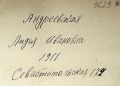 Андреевская
Лидия Ивановна
1911
Севастопольская